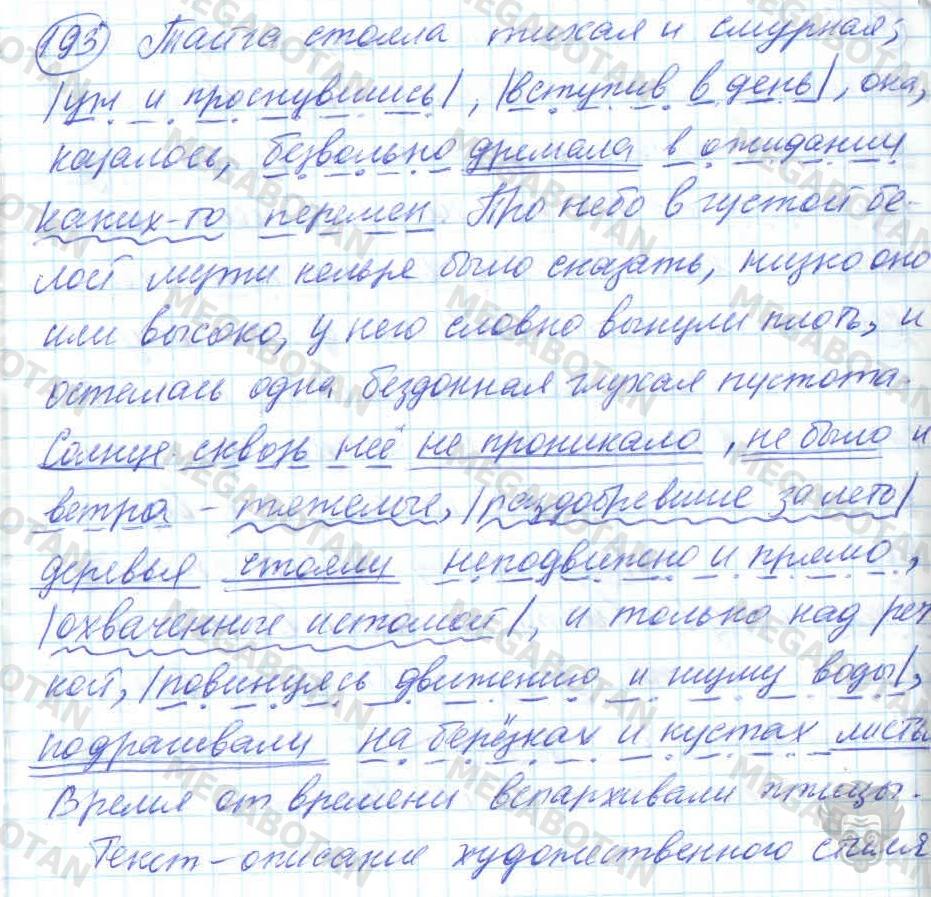 193 Тайга стояла тихая и смурная;
|уж и проснувшись|, |вступив в день|, она,
казалось, безвольно дремала в ожидании
каких-то перемен. Про небо в густой бе-
лой мути нельзя было сказать, низко оно
или высоко, у него словно вынули плоть, и
осталась одна бездонная глухая пустота.
Солнце сквозь неё не проникало, не было и
ветра – тяжелые, |раздобревшие за лето|
деревья стояли неподвижно и прямо,
|охваченные истомой|, и только над реч
кой, |повинуясь движению и шуму воды|,
подрагивали на берёзках и кустах листья
Время от времени вспархивали птицы.
Текст – описание художественного стиля
MEGABOTAN